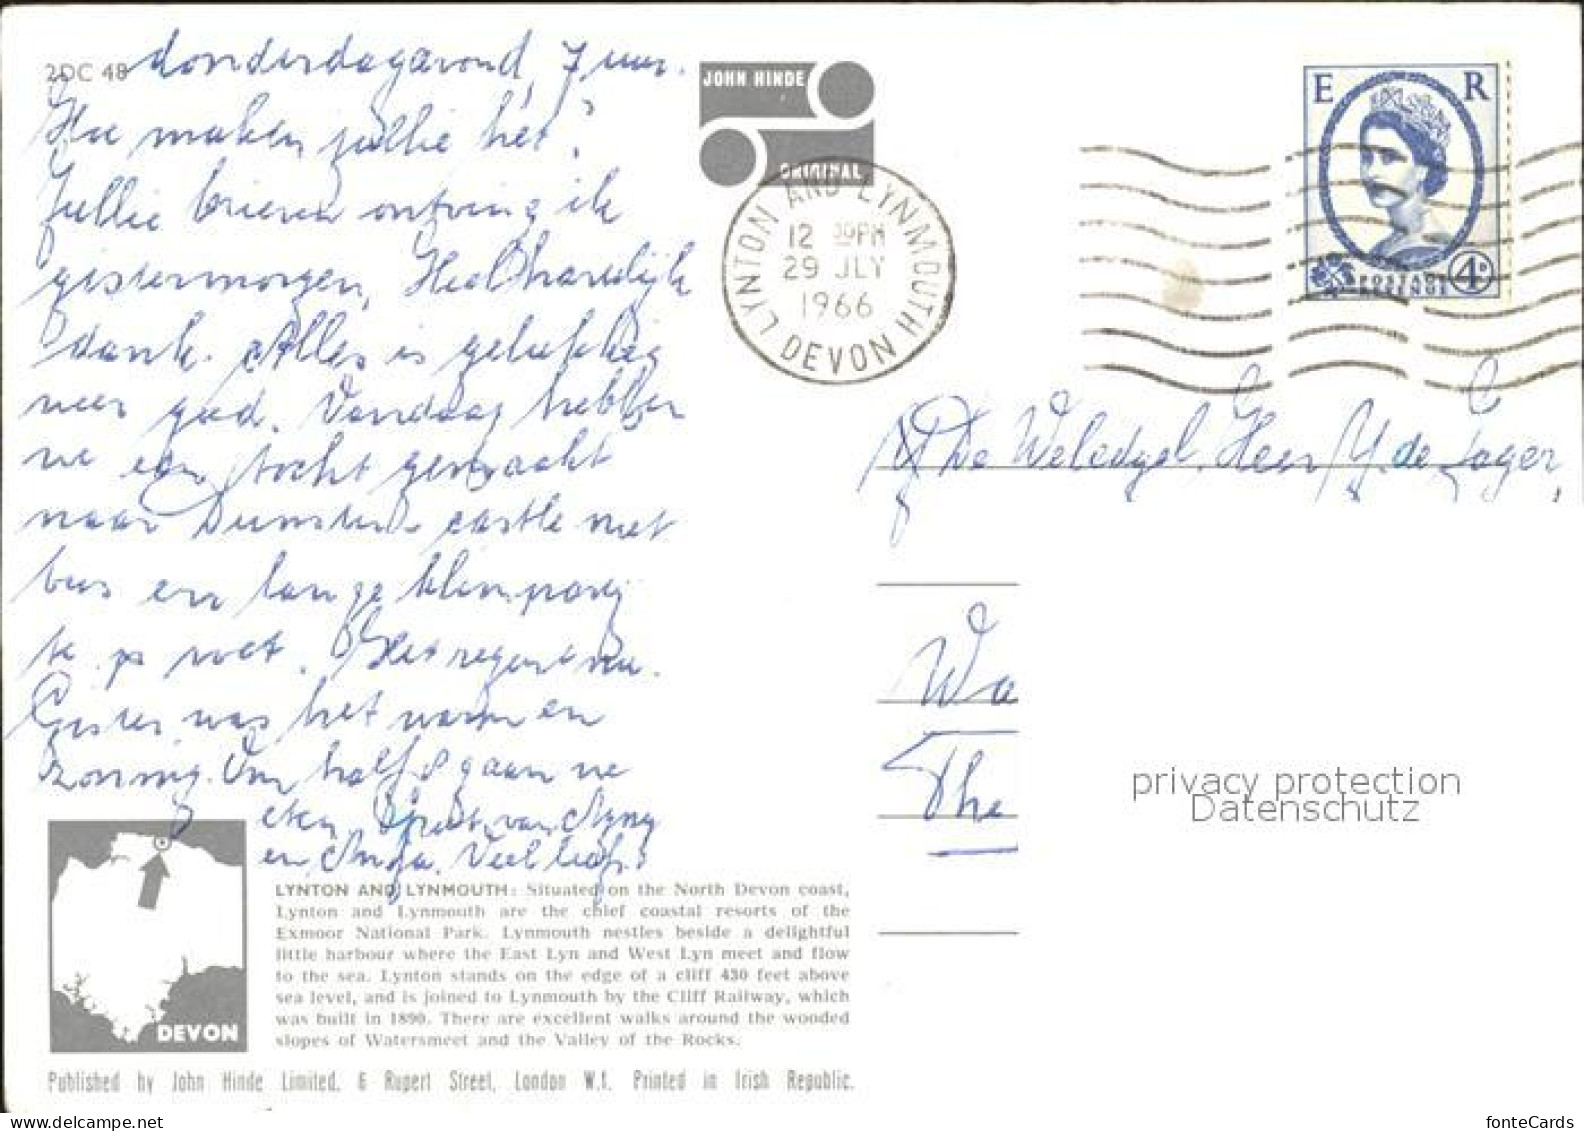 2DC 48
donderdagavond, 7 uur.
Hoe maken jullie het?
Jullie brieven ontving ik
gistermorgen, Heel hartelijk
dank. Alles is gelukkig
weer goed. Vandaag hebben
we een tocht gemaakt
naar Dunster castle met
bus en lange klimpartij
te voet. Het regent nu.
Gister was het warm en
zonnig. Om half 8 gaan we
eten. van
en Anja. Veel liefs
JOHN HINDE
ORIGINAL
LYNTON AND LYNMOUTH
12 30PM
29 JLY
1966
DEVON
E R
POSTAGE
REVENUE
4D
De Weledgel. Heer Y. de Jager,
Wa
The
privacy protection
Datenschutz
DEVON
LYNTON AND LYNMOUTH: Situated on the North Devon coast,
Lynton and Lynmouth are the chief coastal resorts of the
Exmoor National Park. Lynmouth nestles beside a delightful
little harbour where the East Lyn and West Lyn meet and flow
to the sea. Lynton stands on the edge of a cliff 430 feet above
sea level, and is joined to Lynmouth by the Cliff Railway, which
was built in 1890. There are excellent walks around the wooded
slopes of Watersmeet and the Valley of the Rocks.
Published by John Hinde Limited, 6 Rupert Street, London W.1. Printed in Irish Republic.
fonteCards
www.delcampe.net